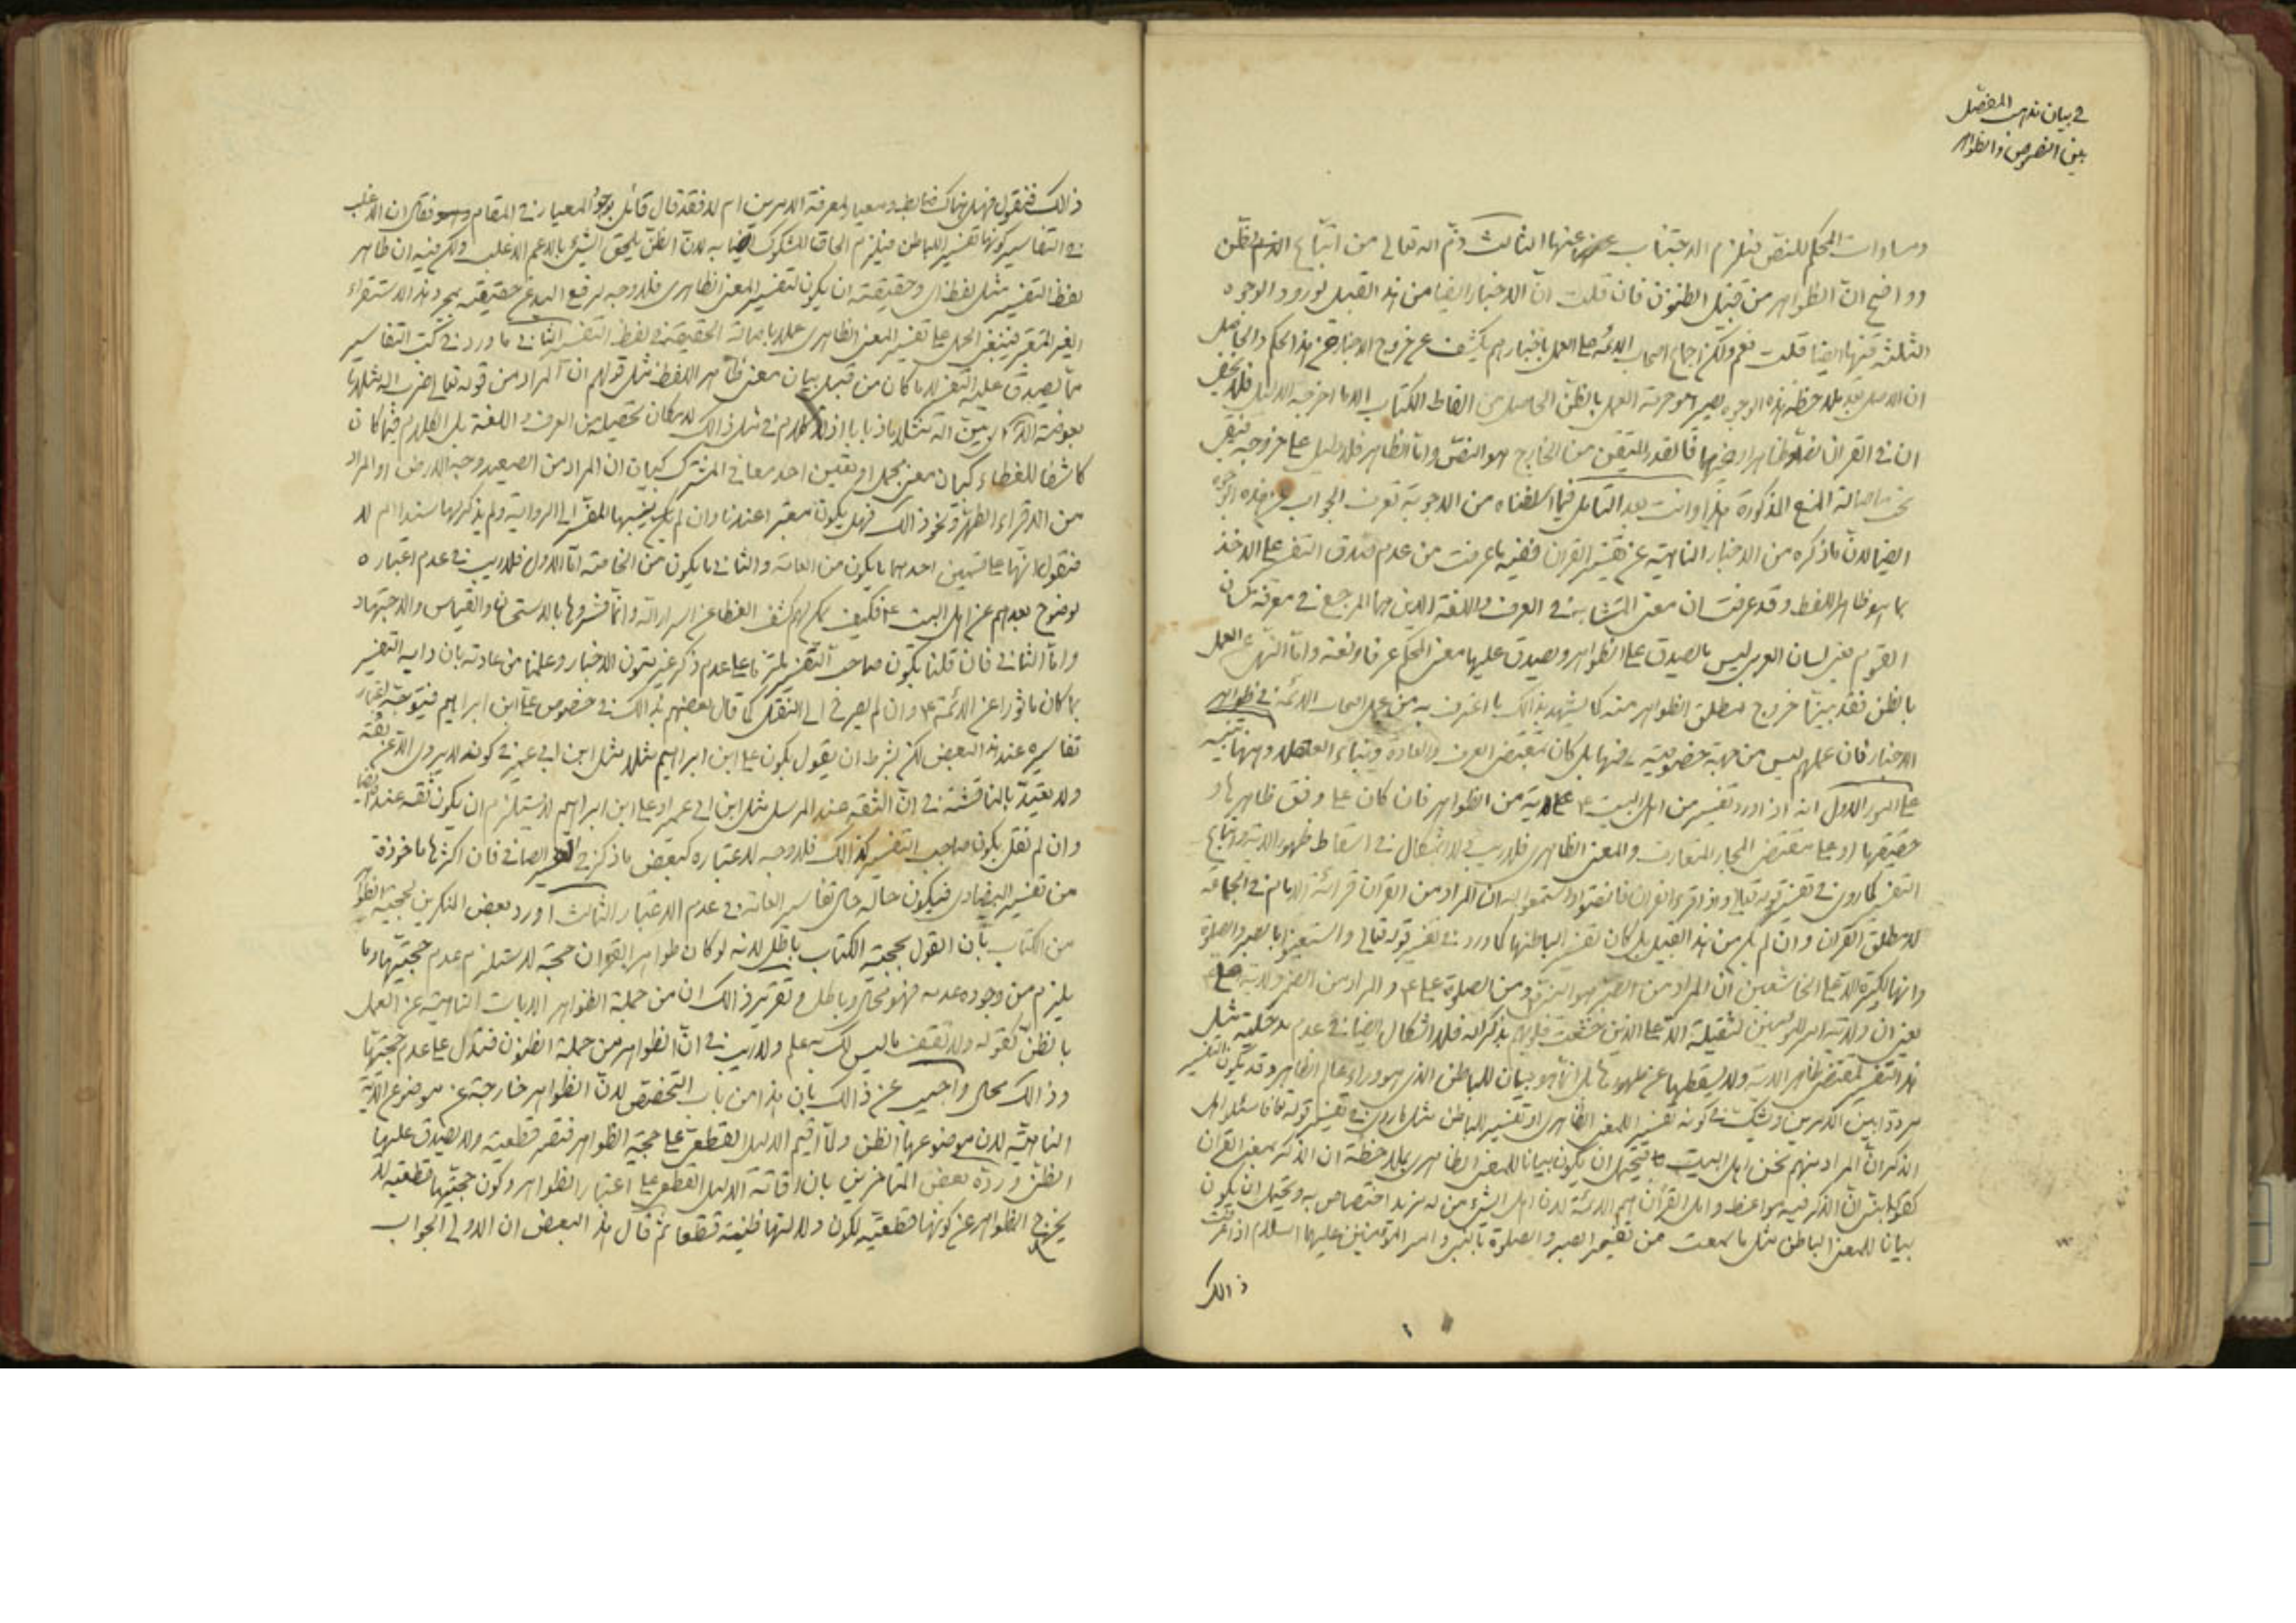 في بيان مذهب المفصل
بين النصوص والظواهر
ومساوات المحكم للنص فيلزم الاجتناب عنها الثالث ذم الله تعالى من اتباع الظن
وواضح ان الظواهر من قبيل الظنون فان قلت ان الاخبار ايضا من هذا القبيل لورود الوجوه
الثلثة فيها ايضا قلت نعم ولكن اجماع اصحاب الائمة على العمل باخبارهم يكشف عن خروج الاخبار عن هذا الحكم والحاصل
ان الاصل بعد ملاحظة هذه الوجوه يصير هو حرمة العمل بالظن الحاصل من الفاظ الكتاب الا ما اخرجه الدليل فلا يخفى
ان في القران نصا وظاهرا وغيرها فالقدر المتيقن من الخارج هو النص واما الظاهر فلا دليل على خروجه فيبقى
تحت اصالة المنع المذكورة هذا وانت بعد التامل فيما اسلفناه من الاجوبة تعرف الجواب عن هذه الوجوه
ايضا لان ما ذكره من الاخبار الناهية عن تفسير القران ففيه ما عرفت من عدم صدق التفسير على الاخذ
بما هو ظاهر اللفظ وقد عرفت ان معنى المتشابه في العرف واللغة الذين هما المرجع في معرفة لسان
القوم يعني لسان العرب ليس ما يصدق على الظواهر ويصدق عليها معنى المحكم عرفا ولغة واما النهي عن العمل
بالظن فقد بينا خروج مطلق الظواهر منه كما يشهد بذالك ما اعترف به من عمل اصحاب الائمة في ظواهر
الاخبار فان عملهم ليس من جهة خصوصية فيها بل كان بمقتضى العرف والعادة وبناء العقلاء وههنا تنبيه
على امور الاول انه اذا ورد تفسير من اهل البيت ع على اية من الظواهر فان كان على وفق ظاهرها و
حقيقتها او على مقتضى المجاز المتعارف والمعنى الظاهري فلا ريب ولا اشكال في اسقاط ظهور الاية واتباع
التفسير كما روي في تفسير قوله تعالى واذا قرء القران فانصتوا واستمعوا له ان المراد من القران قرائة الامام في الجماعة
لا مطلق القران وان لم يكن من هذا القبيل بل كان تفسير الباطنها كما ورد في تفسير قوله تعالى واستعينوا بالصبر والصلوة
وانها لكبيرة الا على الخاشعين ان المراد من الصبر هو النبي ومن الصلوة علي ع والمراد من الضمير ولاية علي ع
يعني ان ولاية امير المؤمنين لثقيلة الا على الذين خشعت قلوبهم بذكر الله فلا اشكال ايضا في عدم مدخلية مثل
هذا التفسير لمقتضى ظاهر الاية ولا يسقطها عن ظهورها بل انما هو بيان للباطن الذي هو وراء عالم الظاهر وقد يكون التفسير
مرددا بين الامرين ويشك في كونه تفسير اللمعنى الظاهري او تفسير للباطن مثل ما روي في تفسير قوله تعالى فاسئلوا اهل
الذكر ان المراد منهم نحن اهل البيت ع فيحتمل ان يكون بيانا للمعنى الظاهري بملاحظة ان الذكر بمعنى القران
ان الذكر فيه مواعظ واهل القران هم الائمة لان اهل الشيء من له مزيد اختصاص به ويحتمل ان يكون
بيانا للمعنى الباطن مثل ما سمعت من تفسير الصبر والصلوة بالنبي وامير المؤمنين عليهما السلام اذا عرفت
ذالك
ذالك فنقول فهل هناك ضابط ومعيار لمعرفة الامرين ام لا فقد قال قائل بوجود المعيار في المقام فقال ان الاغلب
في التفاسير كونها تفسير اللباطن فيلزم الحاق المشكوك به لان الظن يلحق الشيء بالاعم الاغلب ولكن فيه ان ظاهر
لفظ التفسير مثل لفظ اي وحقيقته ان يكون لتفسير المعنى الظاهري فلا وجه لرفع اليد عن حقيقته بمجرد هذا الاستقراء
الغير المعتبر فينبغي الحمل على تفسير المعنى الظاهري عملا باصالة الحقيقة في لفظ التفسير الثاني ما ورد في كتب التفاسير
مما يصدق عليه التفسير لا ما كان من قبيل بيان معنى ظاهر اللفظ مثل قولهم ان المراد من قوله تعالى ضرب الله مثلا ما
كاشفا للغطاء كبيان معنى مجمل او تعيين احد معاني المشترك كبيان ان المراد من الصعيد وجه الارض او المراد
من القرء الطهر ونحو ذالك فهل يكون معتبرا عندنا وان لم ينسبها المفسر الى الرواية ولم يذكر لها سندا ام لا
فنقول انها على قسمين احدهما ما يكون من العامة والثاني ما يكون من الخاصة اما الاول فلا ريب في عدم اعتباره
لوضوح بعدهم عن اهل البيت ع فكيف يمكن لهم كشف الغطاء عن اسرار الله وانما فسروها بالاستحسان والقياس والاجتهاد
واما الثاني فان قلنا بكون صاحب التفسير ملتزما على عدم ذكر غير متون الاخبار وعلمنا من عادته بان دابه التفسير
بما كان ماثورا عن الائمة ع وان لم يصرح الى النقل كما قال بعضهم بذالك في خصوص علي ابن ابراهيم فيتوجه اعتبار
تفاسيره عند هذا البعض لكن بشرط ان يقول بكون علي ابن ابراهيم مثلا مثل ابن ابي عمير في كونه لا يروي الا عن ثقة
ولا يعتد بالمناقشة في ان الثقة عند المرسل مثل ابن ابي عمير او علي ابن ابراهيم لا يستلزم ان يكون ثقة عندنا ايضا
وان لم نقل بكون صاحب التفسير كذالك فلا وجه لاعتباره كبعض ما ذكر في الصافي فان اكثرها ماخوذة
من تفسير البيضاوي فيكون حاله حال تفاسير العامة في عدم الاعتبار الثالث اورد بعض المنكرين لحجية الظواهر
من الكتاب بان القول بحجية الكتاب باطل لانه لو كان ظواهر القران حجة لاستلزم عدم حجيتها وما
يلزم من وجوده عدمه فهو محال وباطل وتقرير ذالك ان من جملة الظواهر الايات الناهية عن العمل
بالظن كقوله ولا تقف ما ليس لك به علم ولا ريب في ان الظواهر من جملة الظنون فتدل على عدم حجيتها
وذالك محال واجيب عن ذالك بان هذا من باب التخصص لان الظواهر خارجة عن موضوع الاية
الناهية لان موضوعها الظن ولما اقيم الدليل القطعي على حجية الظواهر فتصير قطعية ولا يصدق عليها
الظن ورده بعض المتاخرين بان اقامة الدليل القطعي على اعتبار الظواهر وكون حجيتها قطعية لا
يخرج الظواهر عن كونها قطعية لكون دلالتها ظنية قطعا ثم قال هذا البعض ان الاولى الجواب